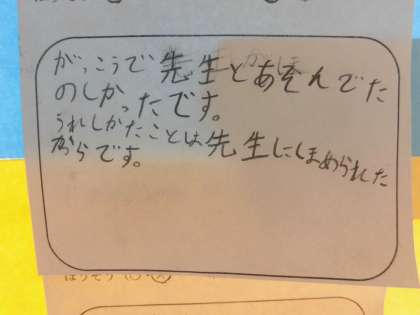 がっこうで先生とあそんでた
のしかったです。
うれしかたことは先生にほめられた
からです。